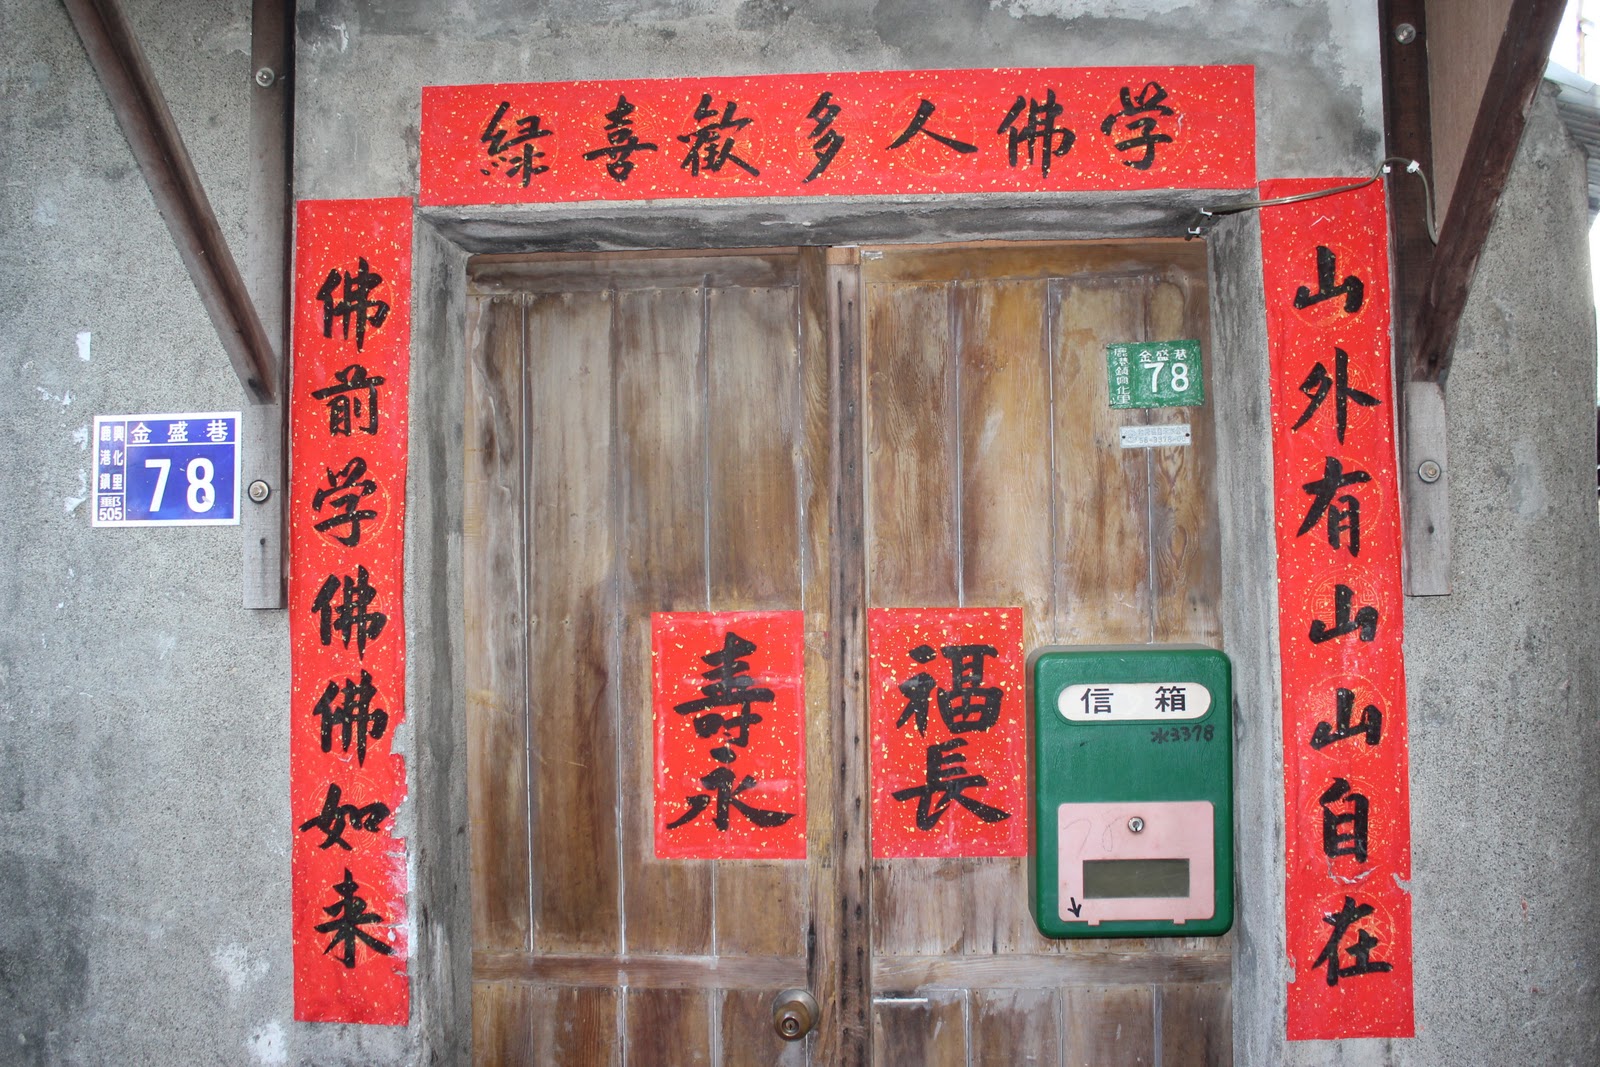 学佛人多歡喜緣
山外有山山自在
佛前学佛佛如来
福長
壽永
金盛巷
78
興化里
鹿港鎮
郵
505
金盛巷
78
鹿港鎮興化里
信箱
水3378